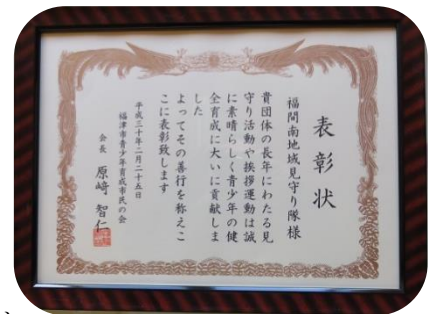 表彰状
福間南地域見守り隊様
貴団体の長年にわたる見
守り活動や挨拶運動は誠
に素晴らしく青少年の健
全育成に大いに貢献しま
した
よってその善行を称えこ
こに表彰致します
平成三十年二月二十五日
福津市青少年育成市民の会
会長 原﨑 智仁